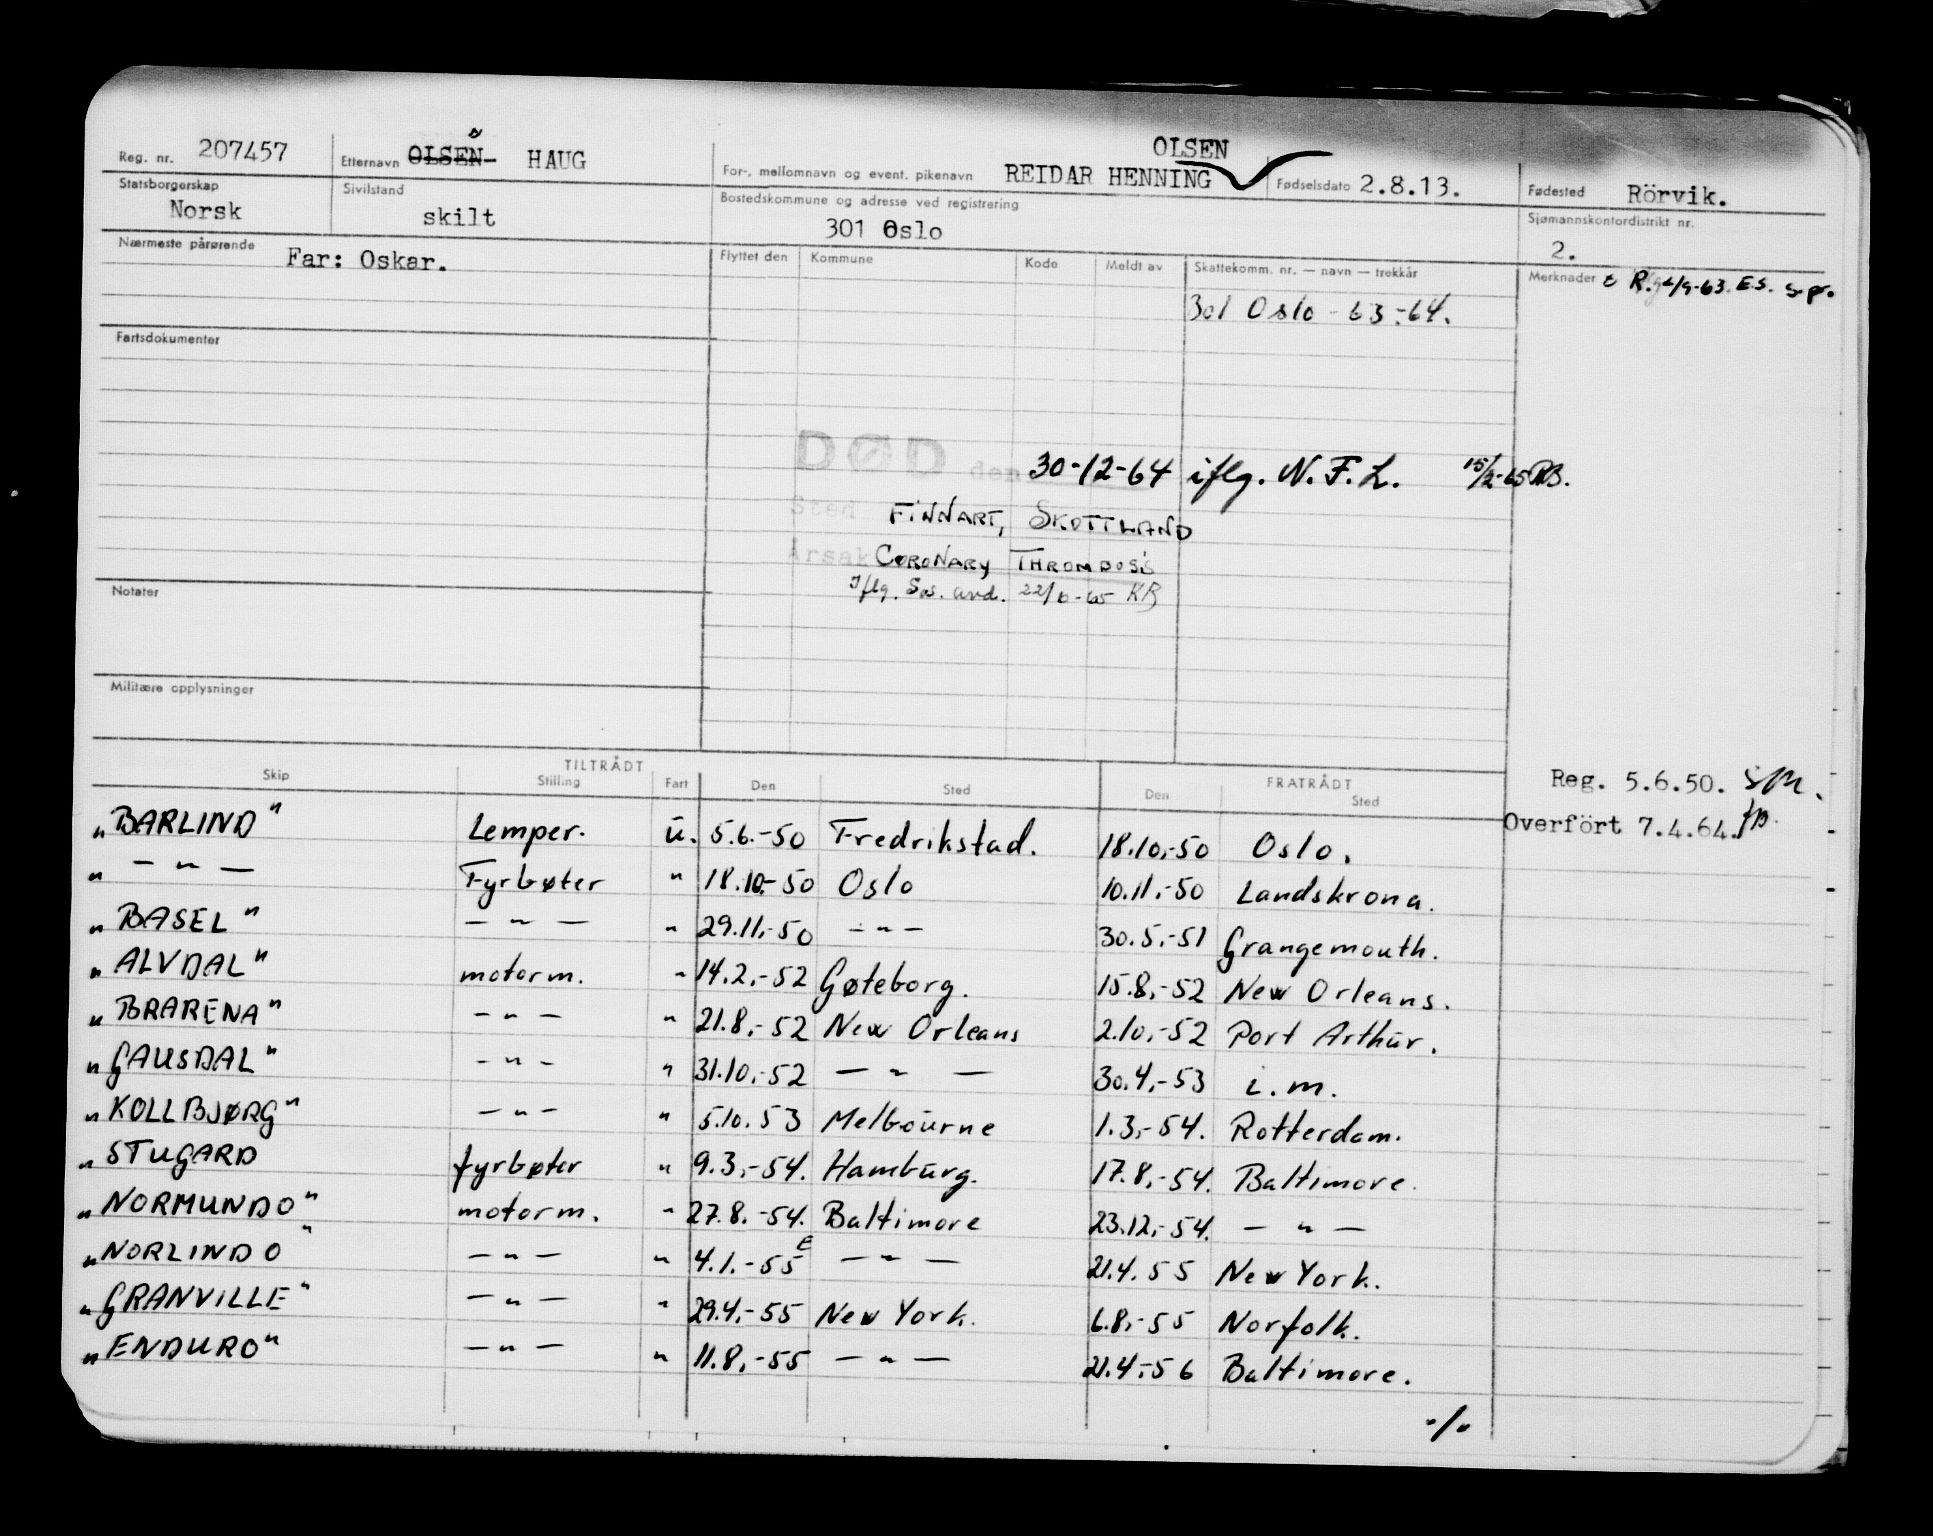 Reg. nr. 207457 Etternavn OLSEN HAUG For-, mellomnavn og event. pikenavn REIDAR HENNING OLSEN Fødselsdato 2.8.13. Fødested Rörvik.
Statsborgerskap Norsk Sivilstand skilt Bostedskommune og adresse ved registrering 301 Oslo Sjømannskontordistrikt nr. 2.
Nærmeste pårørende Far: Oskar. Flyttet den Kommune Kode Meldt av Skattekomm. nr. — navn — trekkår Merknader
301 Oslo - 63-64.
Fartsdokumenter
DØD den 30-12-64 iflg. N.F.L. 15/2-65 RB.
Sted FINNART, SKOTTLAND
Årsak CORONARY THROMBOSIS
Iflg. Sos. avd. 22/6-65 KR
Notater
Militære opplysninger
TILTRÅDT FRATRÅDT
Skip Stilling Fart Den Sted Den Sted
Reg. 5.6.50.
Overfört 7.4.64.
"BARLIND" Lemper. u. 5.6.-50 Fredrikstad. 18.10.-50 Oslo.
" — " — Fyrbøter " 18.10.-50 Oslo 10.11.-50 Landskrona.
"BASEL" — " — " 29.11.-50 — " — 30.5.-51 Grangemouth.
"ALVDAL" motorm. " 14.2.-52 Gøteborg. 15.8.-52 New Orleans.
"BRARENA" — " — " 21.8.-52 New Orleans 2.10.-52 Port Arthur.
"GAUSDAL" — " — " 31.10.-52 — " — 30.4.-53 i.m.
"KOLLBJØRG" — " — " 5.10.53 Melbourne 1.3.-54. Rotterdam.
"STUGARD fyrbøter " 9.3.-54. Hamburg. 17.8.-54. Baltimore.
"NORMUNDO" motorm. " 27.8.-54. Baltimore 23.12.-54. — " —
"NORLINDO" — " — " 4.1.-55 — " — 21.4.55 New York.
"GRANVILLE" — " — " 29.4.-55 New York. 6.8.-55 Norfolk.
"ENDURO" — " — " 11.8.-55 — " — 21.4.-56 Baltimore.
./.